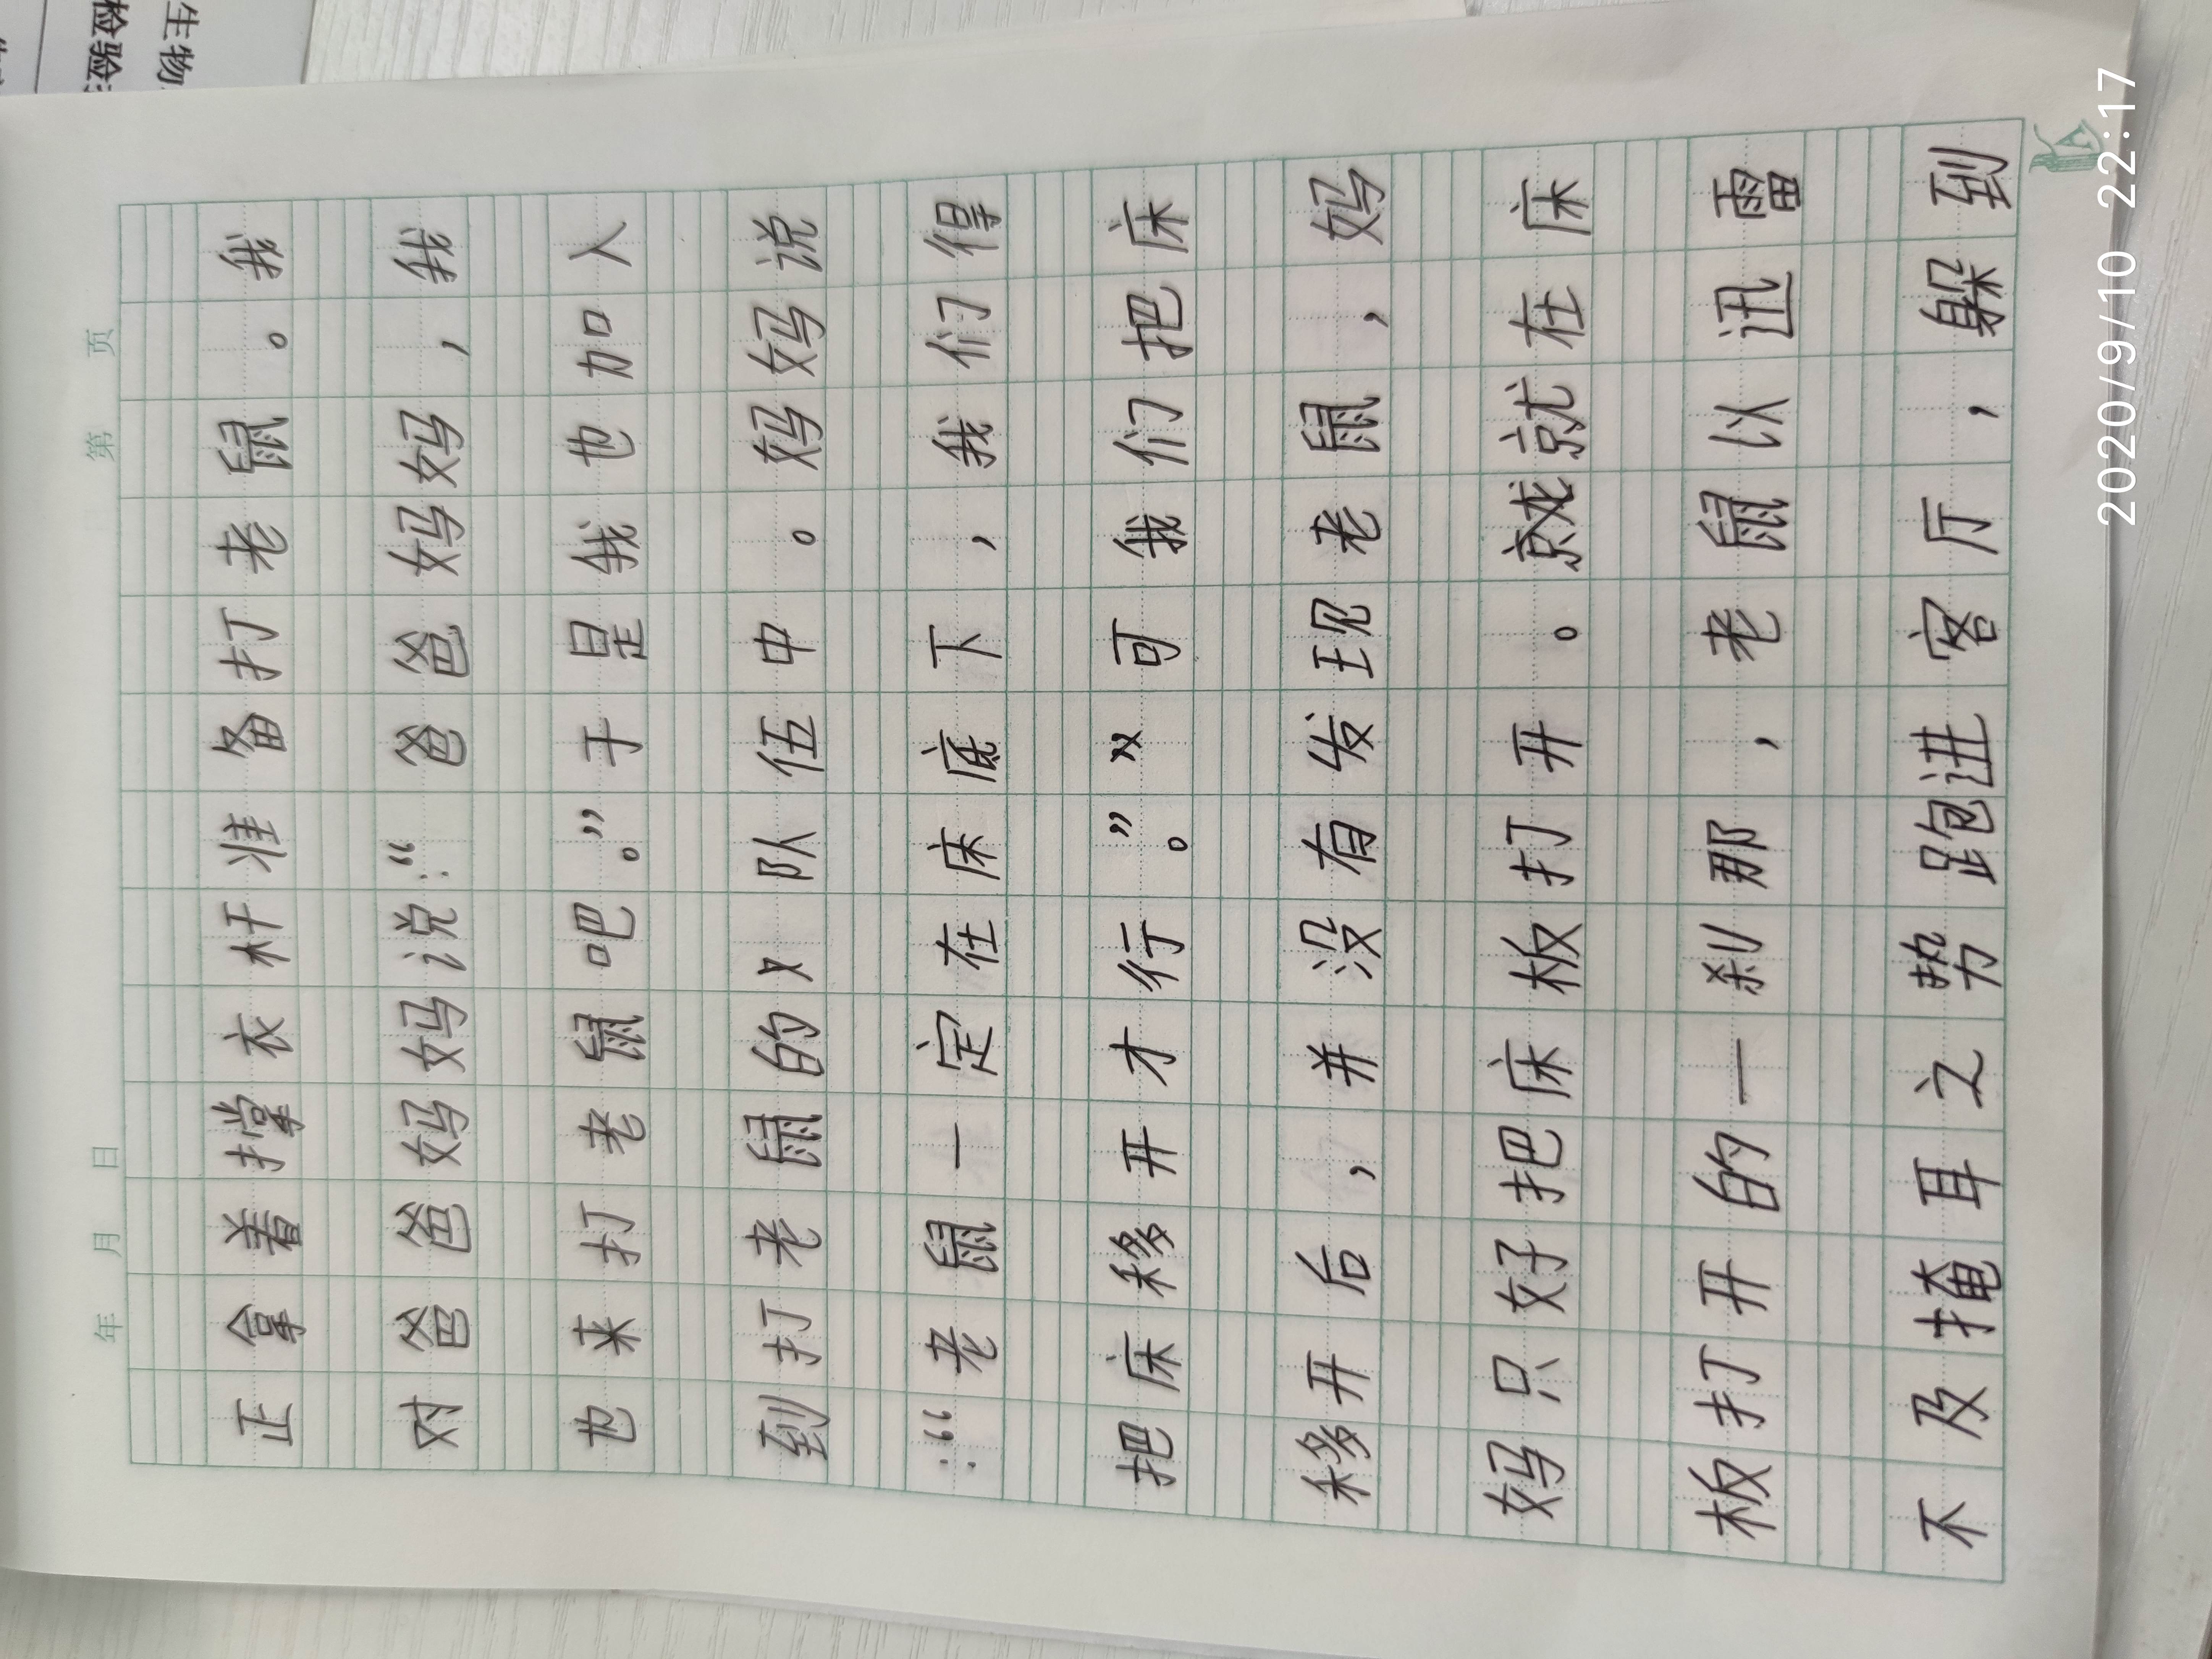 生物
检验
年 月 日 第 页
正拿着撑衣杆准备打老鼠。我
对爸爸妈妈说：“爸爸妈妈，我
也来打老鼠吧。”于是我也加入
到打老鼠的队伍中。妈妈说
：“老鼠一定在床底下，我们得
把床移开才行。”可我们把床
移开后，并没有发现老鼠，妈
妈只好把床板打开。就在床
板打开的一刹那，老鼠以迅雷
不及掩耳之势跑进客厅，躲到
2020/9/10 22:17